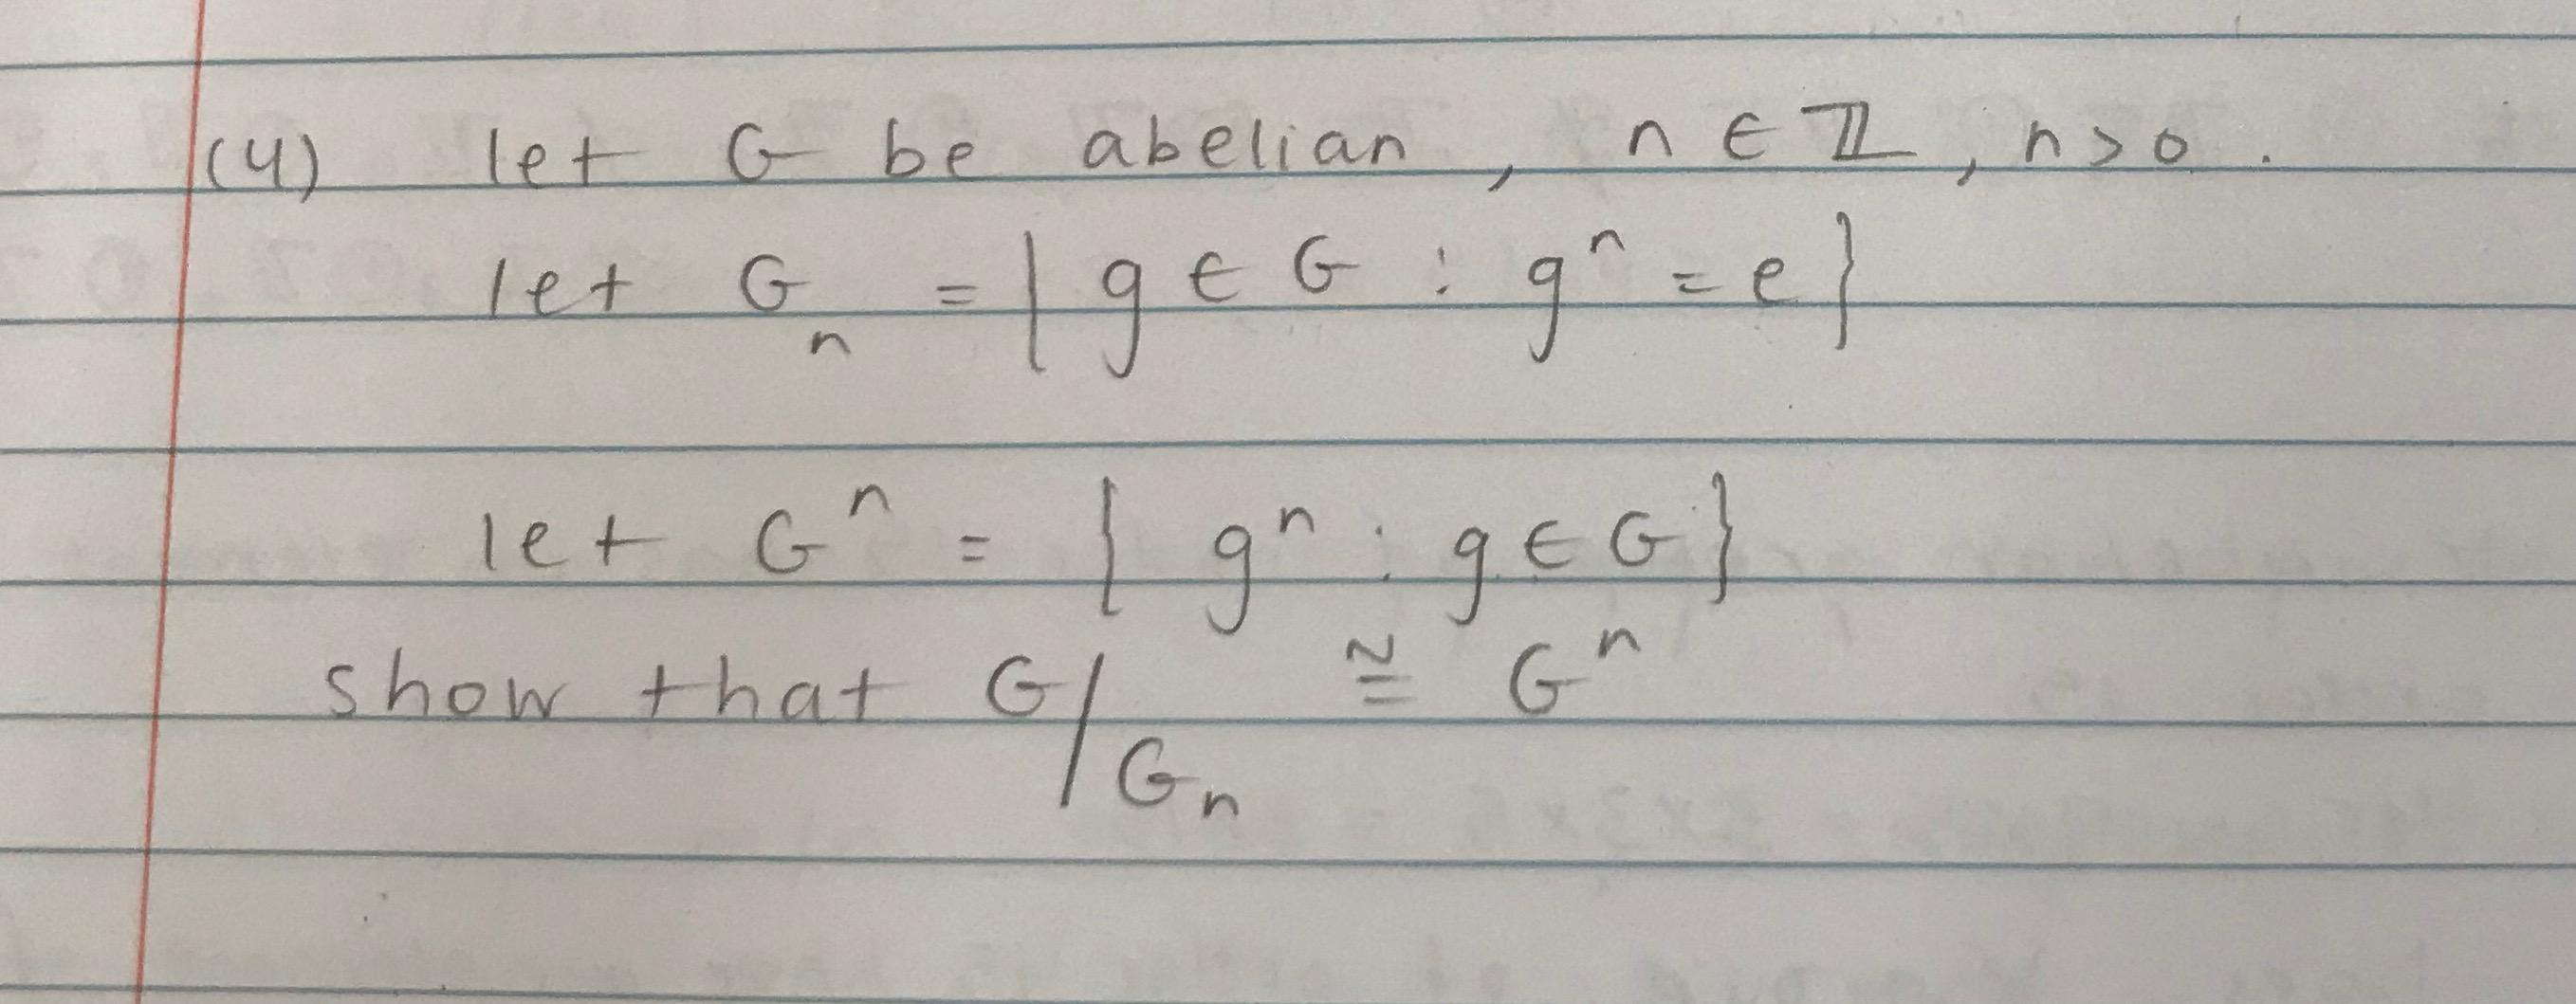 (4) let G be abelian, n ∈ ℤ, n > 0.
let Gₙ = { g ∈ G : gⁿ = e }
let Gⁿ = { gⁿ : g ∈ G }
show that G/Gₙ ≅ Gⁿ